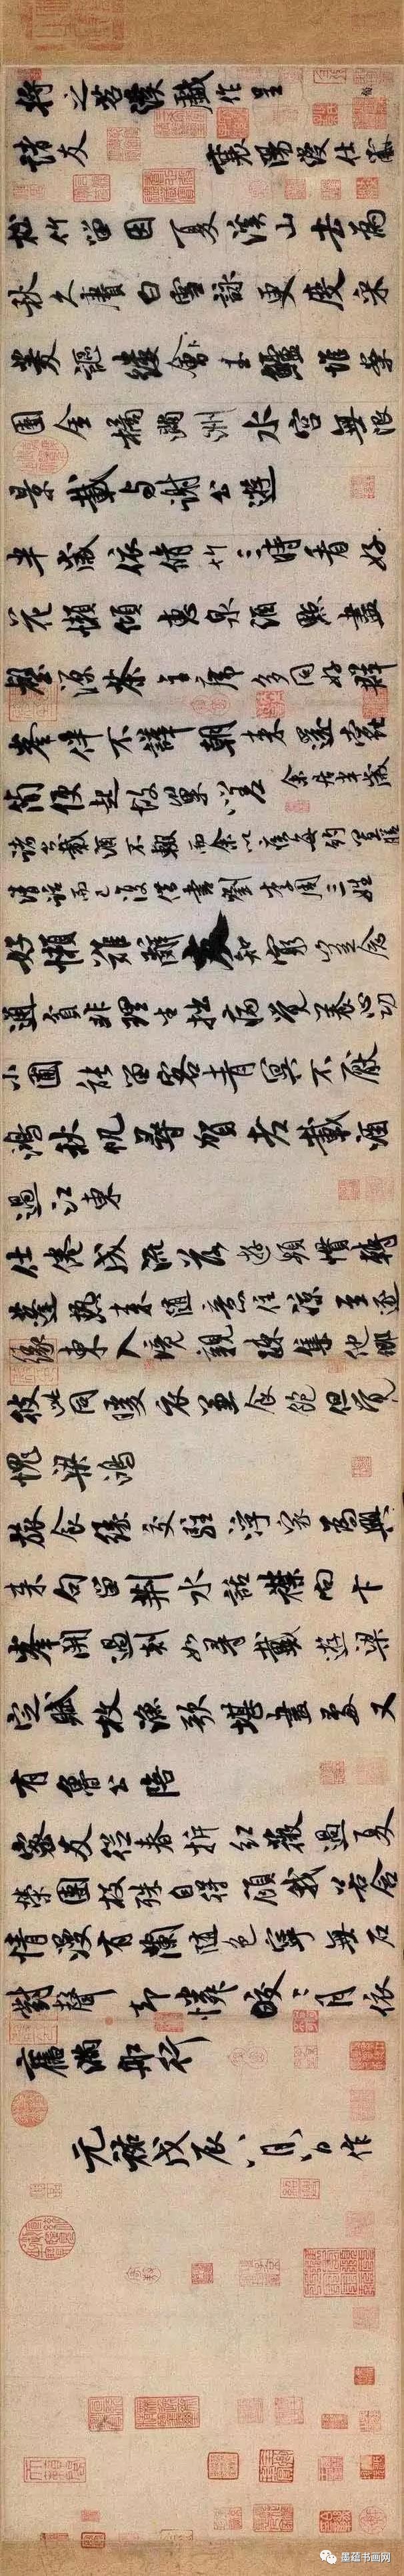 將之苕溪戲作呈
諸友 襄陽漫仕黻
松竹留因夏溪山去為
秋久賡白雪詠更度采
菱謳縷會玉鱸堆案
團金橘滿洲水宮無限
景載與謝公遊
半歲依脩竹三時看好
花懶傾惠泉酒點盡
壑源茶主席多同好群
峯伴不譁朝來還蠹
簡便起故巢嗟 余居半歲
諸公載酒不輟而余以疾每約置膳
清話而已復借書劉李周三姓
好懶難辭友知窮豈念
通貧非理生拙病覺養心功
小圃能留客青冥不厭
鴻秋帆尋賀老載酒
過江東
仕倦成流落遊頻慣轉
蓬熱來隨意住涼至逐
緣東入境親疎集他鄉
彼此同暖衣兼食飽但覺
愧梁鴻
旅食緣交駐浮家為興
來句留荊水話襟向卞
峯開過剡如尋戴遊梁
定賦枚漁歌堪畫處又
有魯公陪
密友從春拆紅薇過夏
榮團枝殊自得顧我若含
情漫有蘭隨色寧無石
對聲却憐皎々月依
舊滿船行
元祐戊辰八月八日作
墨蕴书画网